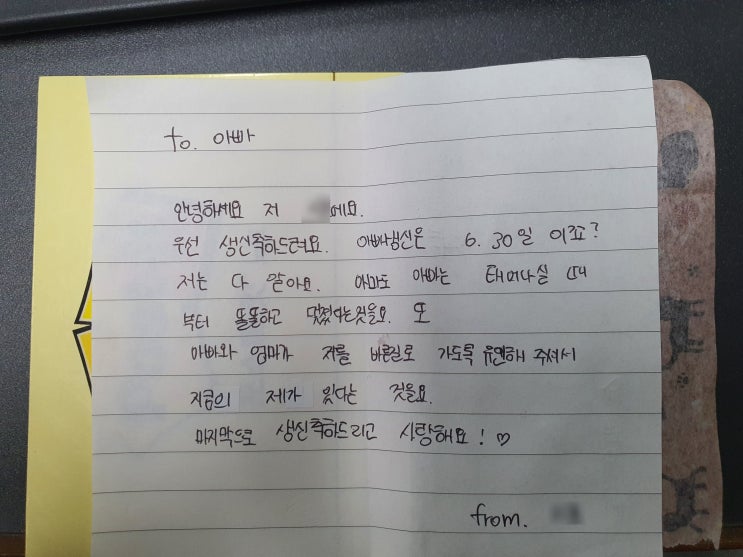 to. 아빠
안녕하세요 저 에요.
우선 생신축하드려요. 아빠생신은 6. 30일 이죠?
저는 다 알아요. 아마도 아빠는 태어나실 때
부터 똘똘하고 멋졌다는것을요. 또
아빠와 엄마가 저를 바른길로 가도록 유원해 주셔서
지금의 제가 있다는 것을요.
마지막으로 생신축하드리고 사랑해요! ♡
from.